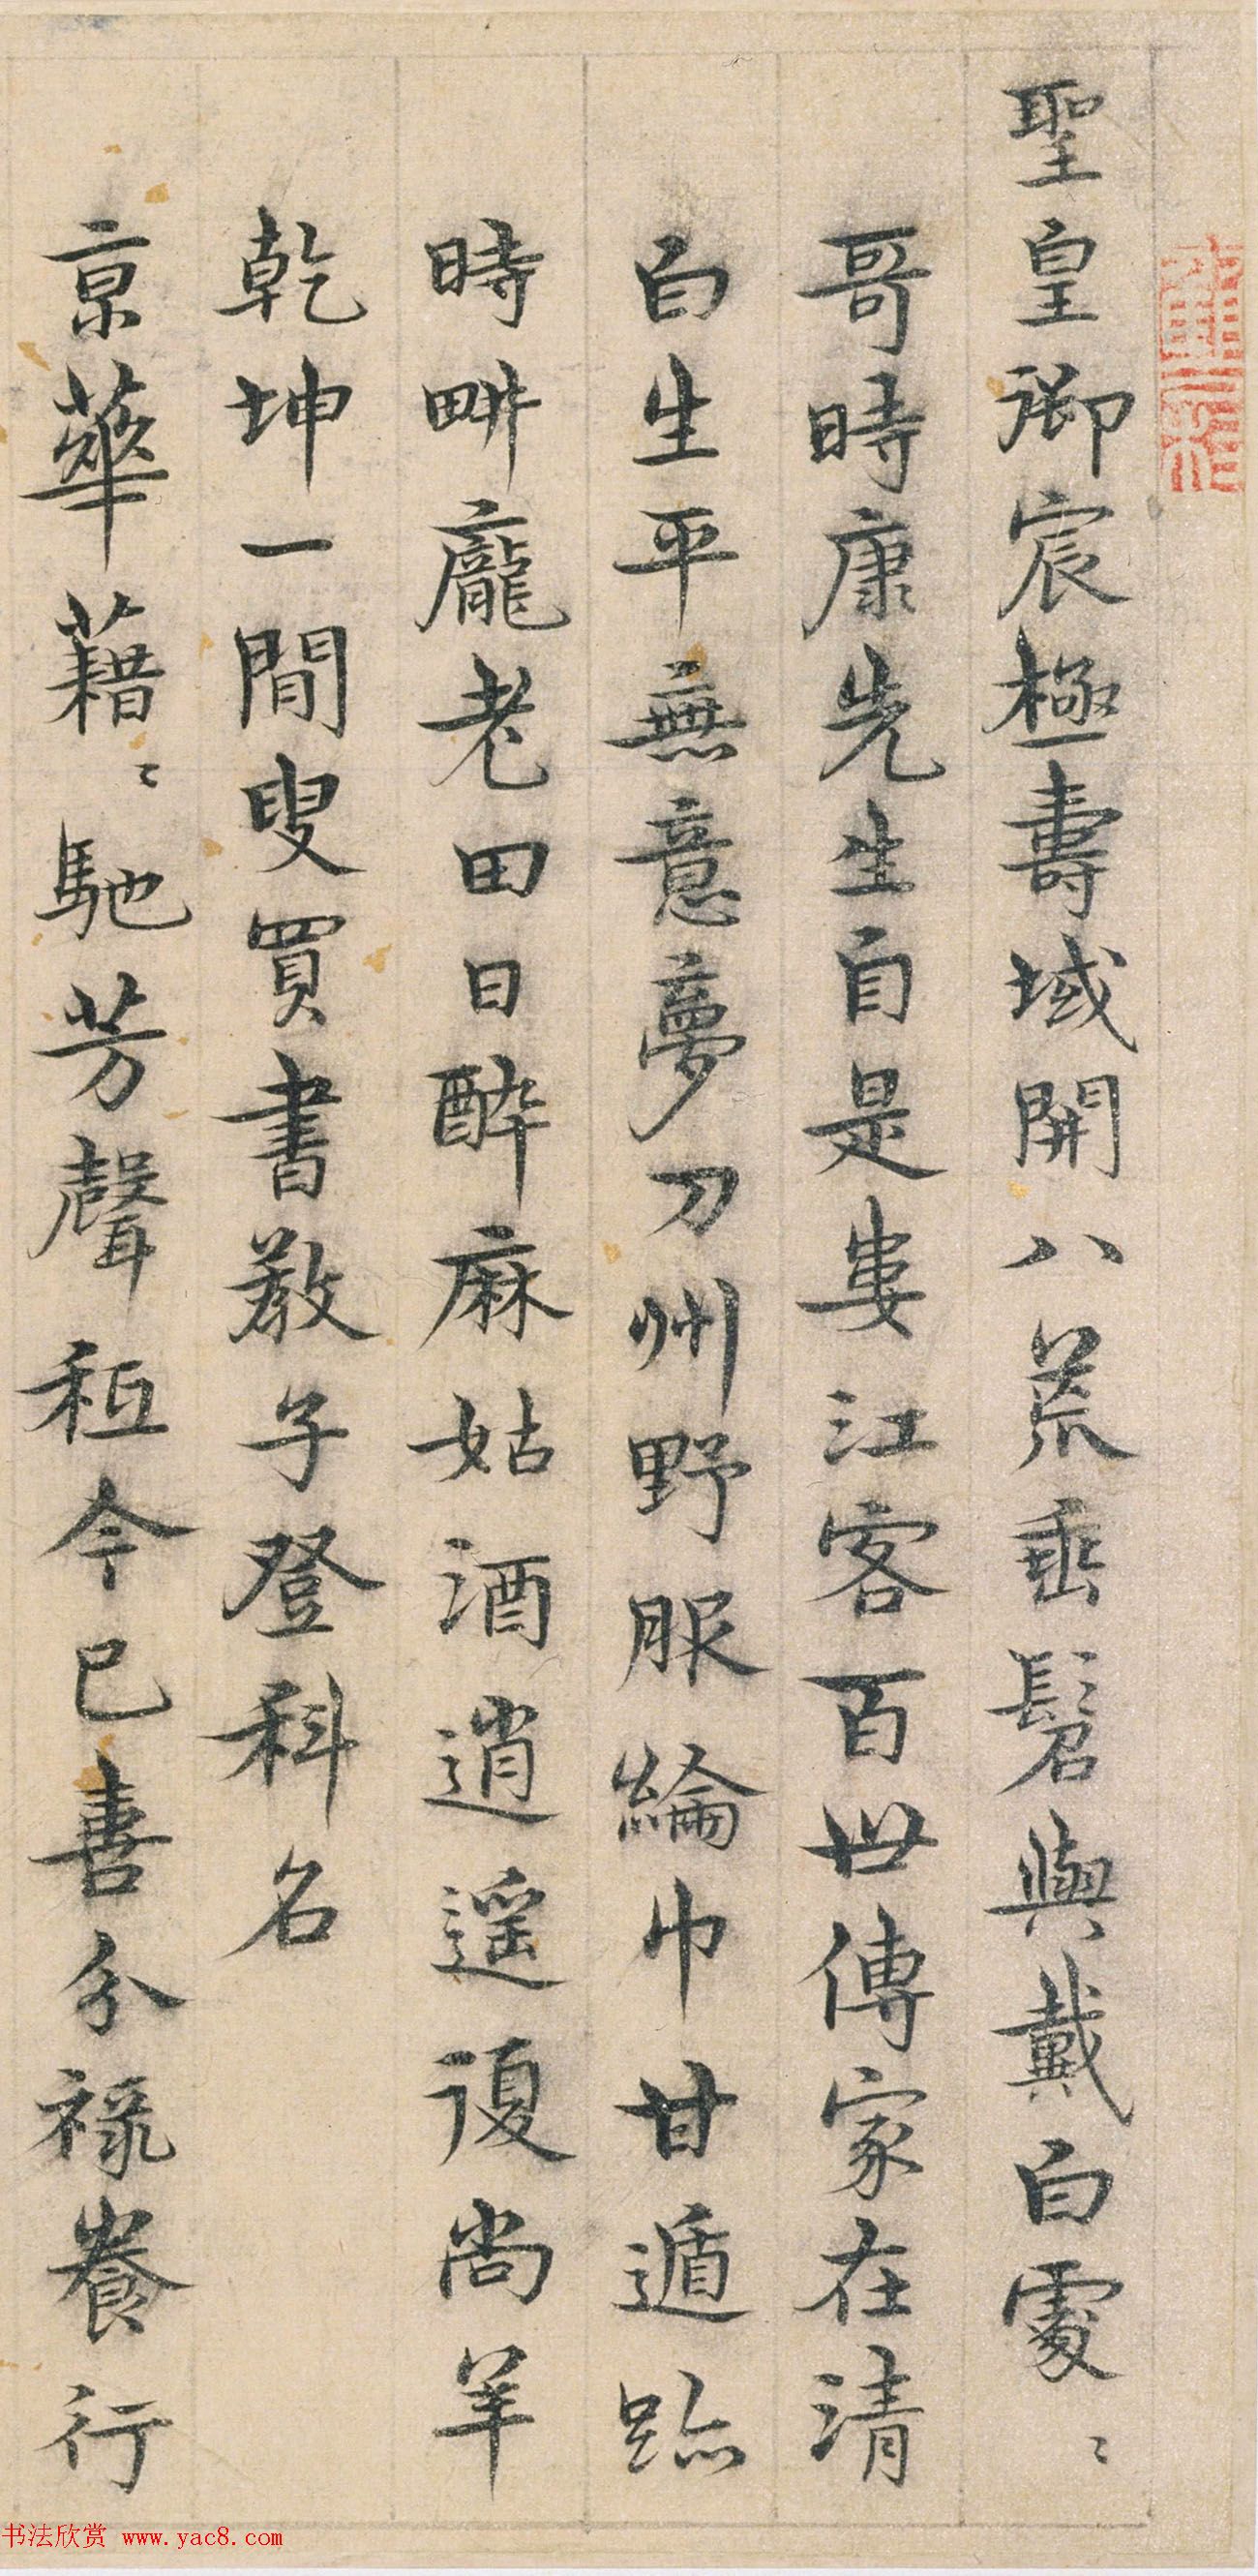 聖皇御宸極壽域開八荒垂髫與戴白處〻
哥時康先生自是婁江客百世傳家在清
白生平無意夢刀州野服綸巾甘遁跡
時畊龐老田日醉麻姑酒逍遥復尚羊
乾坤一閒叟買書教子登科名
京華藉〻馳芳聲秪今已喜分祿養行
书法欣赏 www.yac8.com